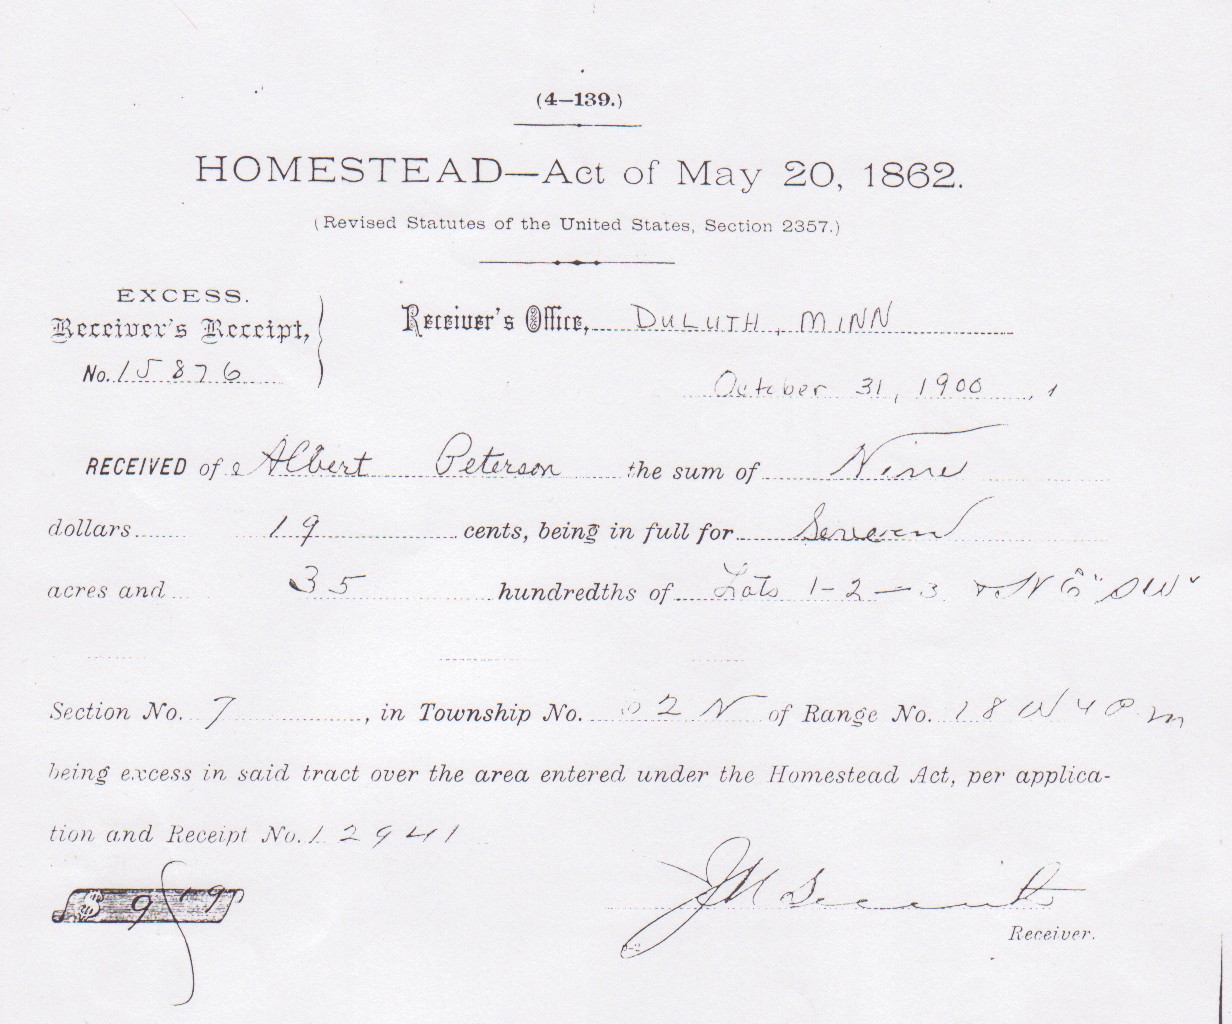 (4—139.)
HOMESTEAD—Act of May 20, 1862.
(Revised Statutes of the United States, Section 2357.)
EXCESS.
Receiver's Receipt,
No. 15876
Receiver's Office, DULUTH, MINN
October 31, 1900, 1
RECEIVED of Albert Peterson the sum of Nine
dollars 19 cents, being in full for Seven
acres and 35 hundredths of Lots 1-2-3 & NE" SW"
Section No. 7, in Township No. 2 N of Range No. 18 W 4 P m
being excess in said tract over the area entered under the Homestead Act, per applica-
tion and Receipt No. 12941
$ 9 19
Receiver.